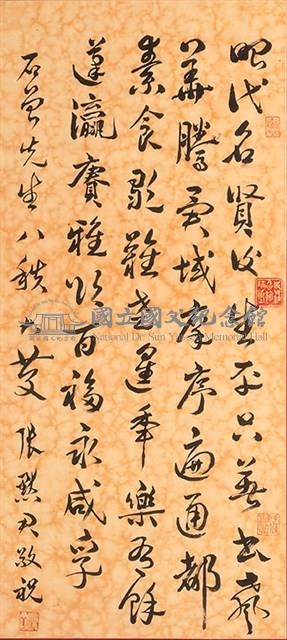 昭代名賢後生平只著書聲
華騰異域庠序遍通都
素食難老遐年樂有餘
蓬瀛賡雅頌百福永咸孚
石曾先生八秩大慶 張默君敬祝
國立國父紀念館
National Dr. Sun Yat-sen Memorial Hall